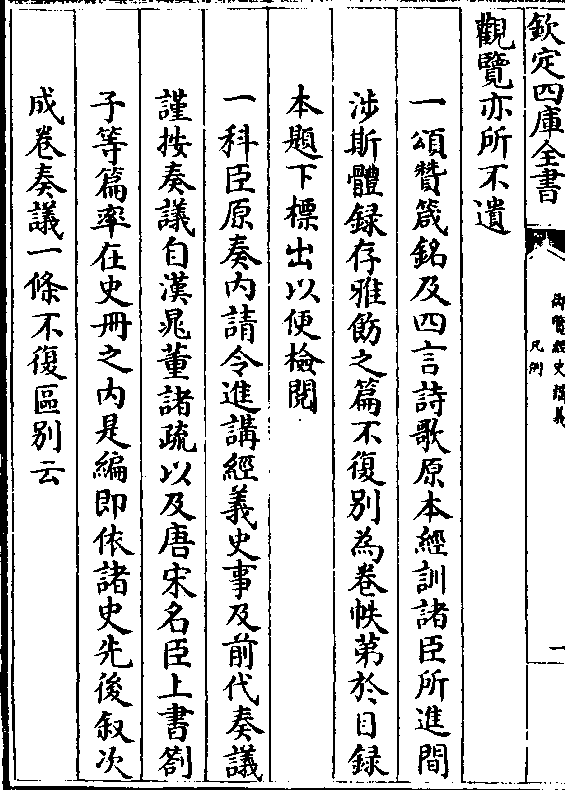 欽定四庫全書
御覽經史講義
凡例
一
觀覽亦所不遺
一頌贊箴銘及四言詩歌原本經訓諸臣所進間
涉斯體録存雅飭之篇不復别為卷帙第於目録
本題下標出以便檢閱
一科臣原奏内請令進講經義史事及前代奏議
謹按奏議自漢晁董諸疏以及唐宋名臣上書劄
子等篇率在史冊之内是編即依諸史先後叙次
成卷奏議一條不復區别云